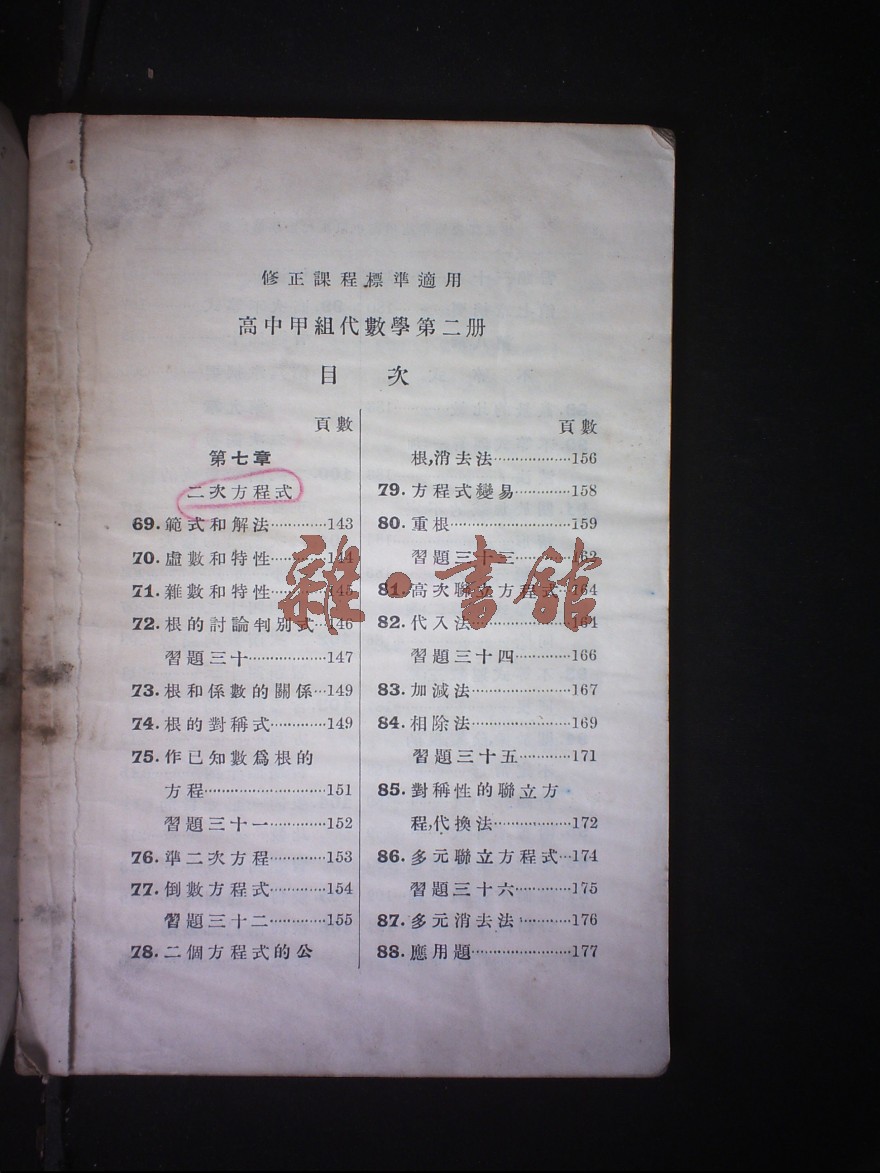 修正課程標準適用
高中甲組代數學第二册
目 次
頁數
第七章
二次方程式
69.範式和解法…………143
70.虛數和特性…………144
71.雜數和特性…………145
72.根的討論判別式…146
習題三十………………147
73.根和係數的關係…149
74.根的對稱式…………149
75.作已知數爲根的
方程………………………151
習題三十一……………152
76.準二次方程…………153
77.倒數方程式…………154
習題三十二……………155
78.二個方程式的公
頁數
根,消去法………………156
79.方程式變易…………158
80.重根……………………159
習題三十三……………162
81.高次聯立方程式…164
82.代入法…………………164
習題三十四……………166
83.加減法…………………167
84.相除法…………………169
習題三十五……………171
85.對稱性的聯立方
程,代換法………………172
86.多元聯立方程式…174
習題三十六……………175
87.多元消去法…………176
88.應用題…………………177
雜·書館